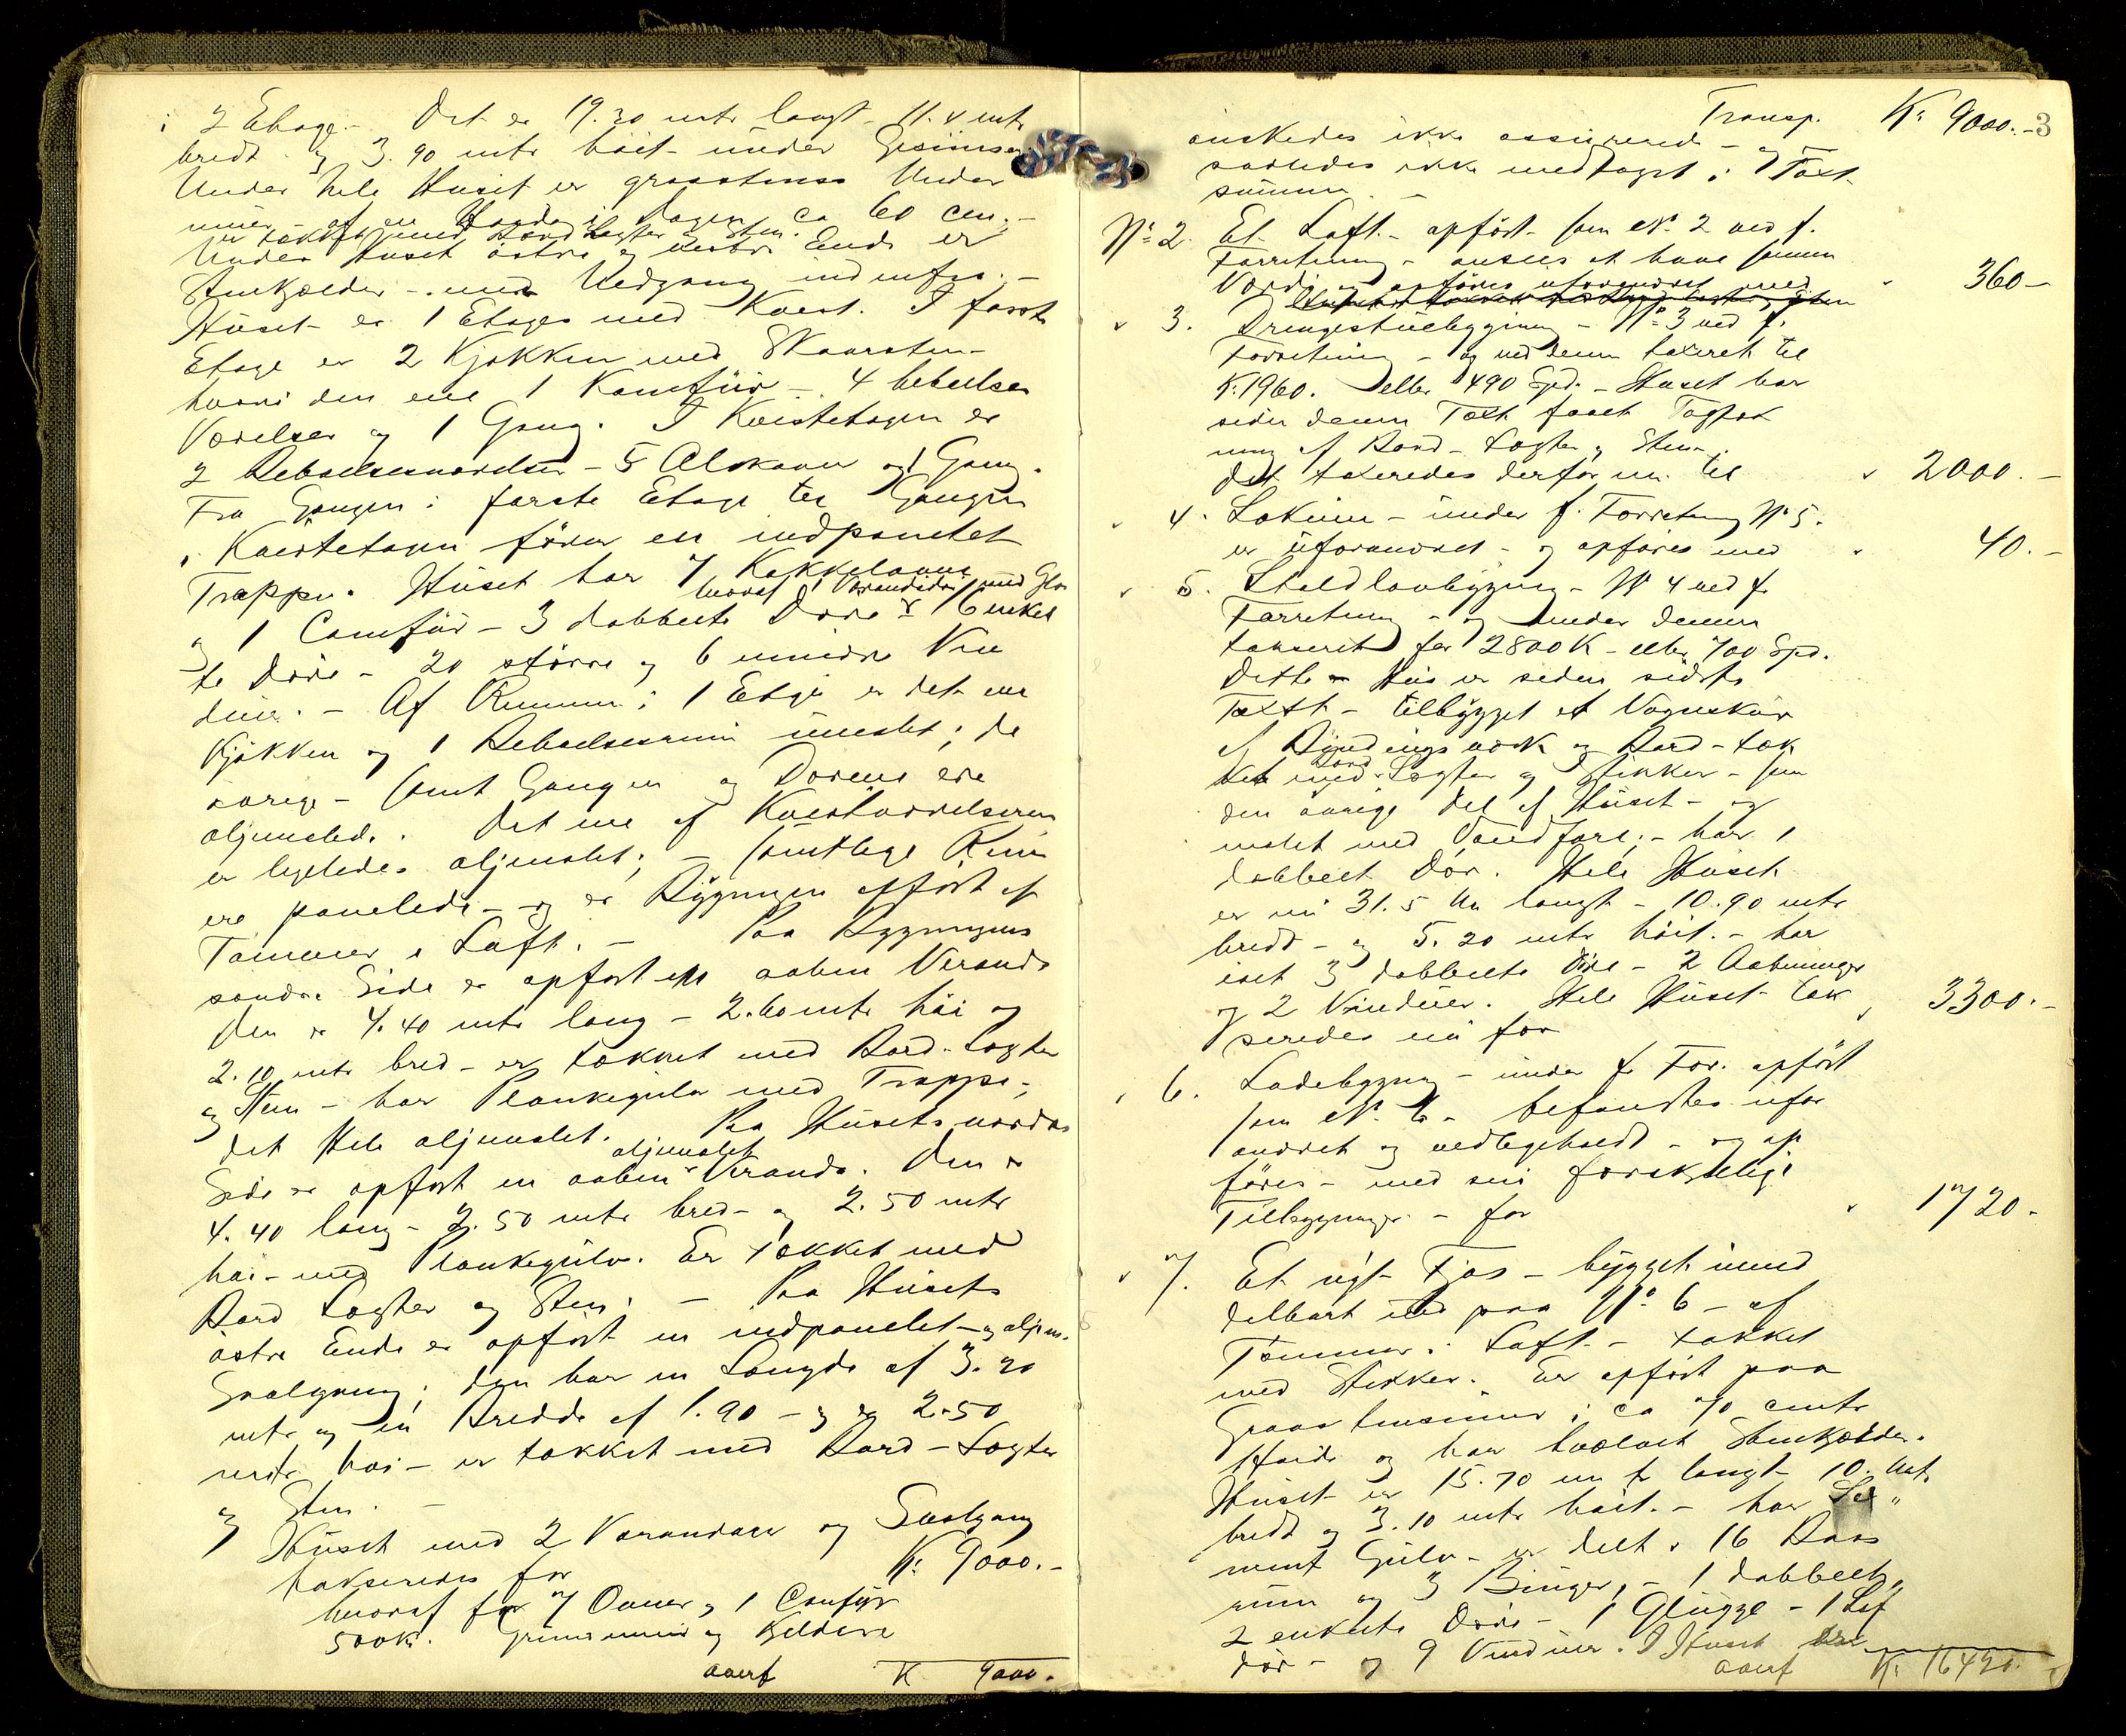 i 2 Etage. Det er 19.30 mtr langt - 11.4 mtr
bredt og 3.90 mtr höit under Gesimsen
Under hele Huset er graastens Under
mur - af en Höide i Dagen ca 60 cm.-
er tækket med Bord Lægter og Sten.
Under Huset östre og vestre Ende er
Stenkjælder - med Nedgang indenfra. -
Huset er 1 Etages med Kvist. I förste
Etage er 2 Kjökken med Skorsten -
hvori den ene 1 Komfür - 4 bebeelses
Værelser og 1 Gang. I Kvistetagen er
2 Beboelsesværelser - 5 Alkover og 1 Gang.
Fra Gangen i förste Etage til Gangen
i Kvistetagen förer en indpanelet
Trappe. Huset har 7 Kakkelovne
hvoraf 1 Verandadör med Glas
og 1 Comfür - 3 dobbelte Döre & 16 enkel
te Döre - 20 större og 6 mindre Vin
duer. - Af Rummene i 1 Etage er det ene
Kjökken og 1 Beboelsesrum umalet; de
övrige - samt Gangen og Dörene ere
oljemalede. Det ene af Kvistværelserne
er ligeledes oljemalet; - samtlige Rum
ere panelede - og er Bygningen opfört af
Tömmer i Laft. - Paa Bygningens
söndre Side er opfört en aaben Veranda
den er 4.40 mtr lang - 2.60 mtr höi og
2.10 mtr bred - er tækket med Bord - Lægter
og Sten - har Plankegulv med Trappe -
det Hele oljemalet. Paa Husets nordre
oljemalet
Side er opfört en aaben Veranda. Den er
4.40 lang - 2.50 mtr bred - og 2.50 mtr
höi - med Plankegulv. Er tækket med
Bord Lægter og Sten. - Paa Husets
östre Ende er opfört en indpanelet - og oljem.
Svalgang; den har en Længde af 3.20
mtr og en Bredde af 1.90 - og er 2.50
mtr höi - er tækket med Bord - Lægter
og Sten. -
Huset med 2 Verandaer og Svalgang
takseredes for K: 9000.-
hvoraf for 7 Ovner og 1 Comfyr
500 K. Grundmur og Kjeldere
overf K 9000.
Transp. K: 9000.- 3
önskedes ikke assureret - og
saaledes ikke medtaget i Taxt
summen. -
No 2. Et Loft - opfört som No 2 ved f.
Forretning - ansees at have samme
Værdi og opföres uforandret med " 360 -
" 3. Drengestuebygning - No 3 ved f.
Forretning - og ved denne taxeret til
K: 1960. eller 490 Spd. - Huset har
siden denne Taxt faaet Tagtæk
ning af Bord - Lægter og Sten.
det taxeredes derfor nu til " 2000. -
" 4. Lokum - under f. Forretning No 5.
er uforandret - og opföres med " 40. -
" 5. Staldlaavbygning - No 4 ved f.
Forretning - og under denne
takseret for 2800 K - eller 700 Spd.
Dette Hus er siden sidste
Taxt - tilbygget et Vognskur
af Bindingsværk og Bord - tæk
Bord
ket med Lægter og Stikker - som
den övrige Del af Huset - og
malet med Vandfarve; - har 1
dobbelt Dör. Hele Huset
er nu 31.5 M langt - 10.90 mtr
bredt - og 5.20 mtr höit. - har
iset 3 dobbelte Döre - 2 Aabninger
og 2 Vinduer. Hele Huset tak
seredes nu for " 3300. -
" 6. Ladebygning - under f. For. opfört
som No 6 - befandtes ufor
andret og vedligeholdt - og op
föres - med sine forskjellige
Tilbygninger - for " 1720.-
" 7. Et nyt Fjös - bygget umid
delbart ind paa No 6 - af
Tömmer i Laft - tækket
med Stikker. Er opfört paa
Graastensmur i ca 70 cmtr
Höide og har hvælvet Stenkjælder.
Huset er 15.70 mtr langt - 10. Mtr.
bredt og 3.10 mtr höit. - har
ment Gulv - er delt i 16 Baas
rum og 3 Binger, - 1 dobbelt,
2 enkelte Döre - 1 Glugge - 1 Luf
dör - og 9 Vinduer. I Huset
overf K: 16420.